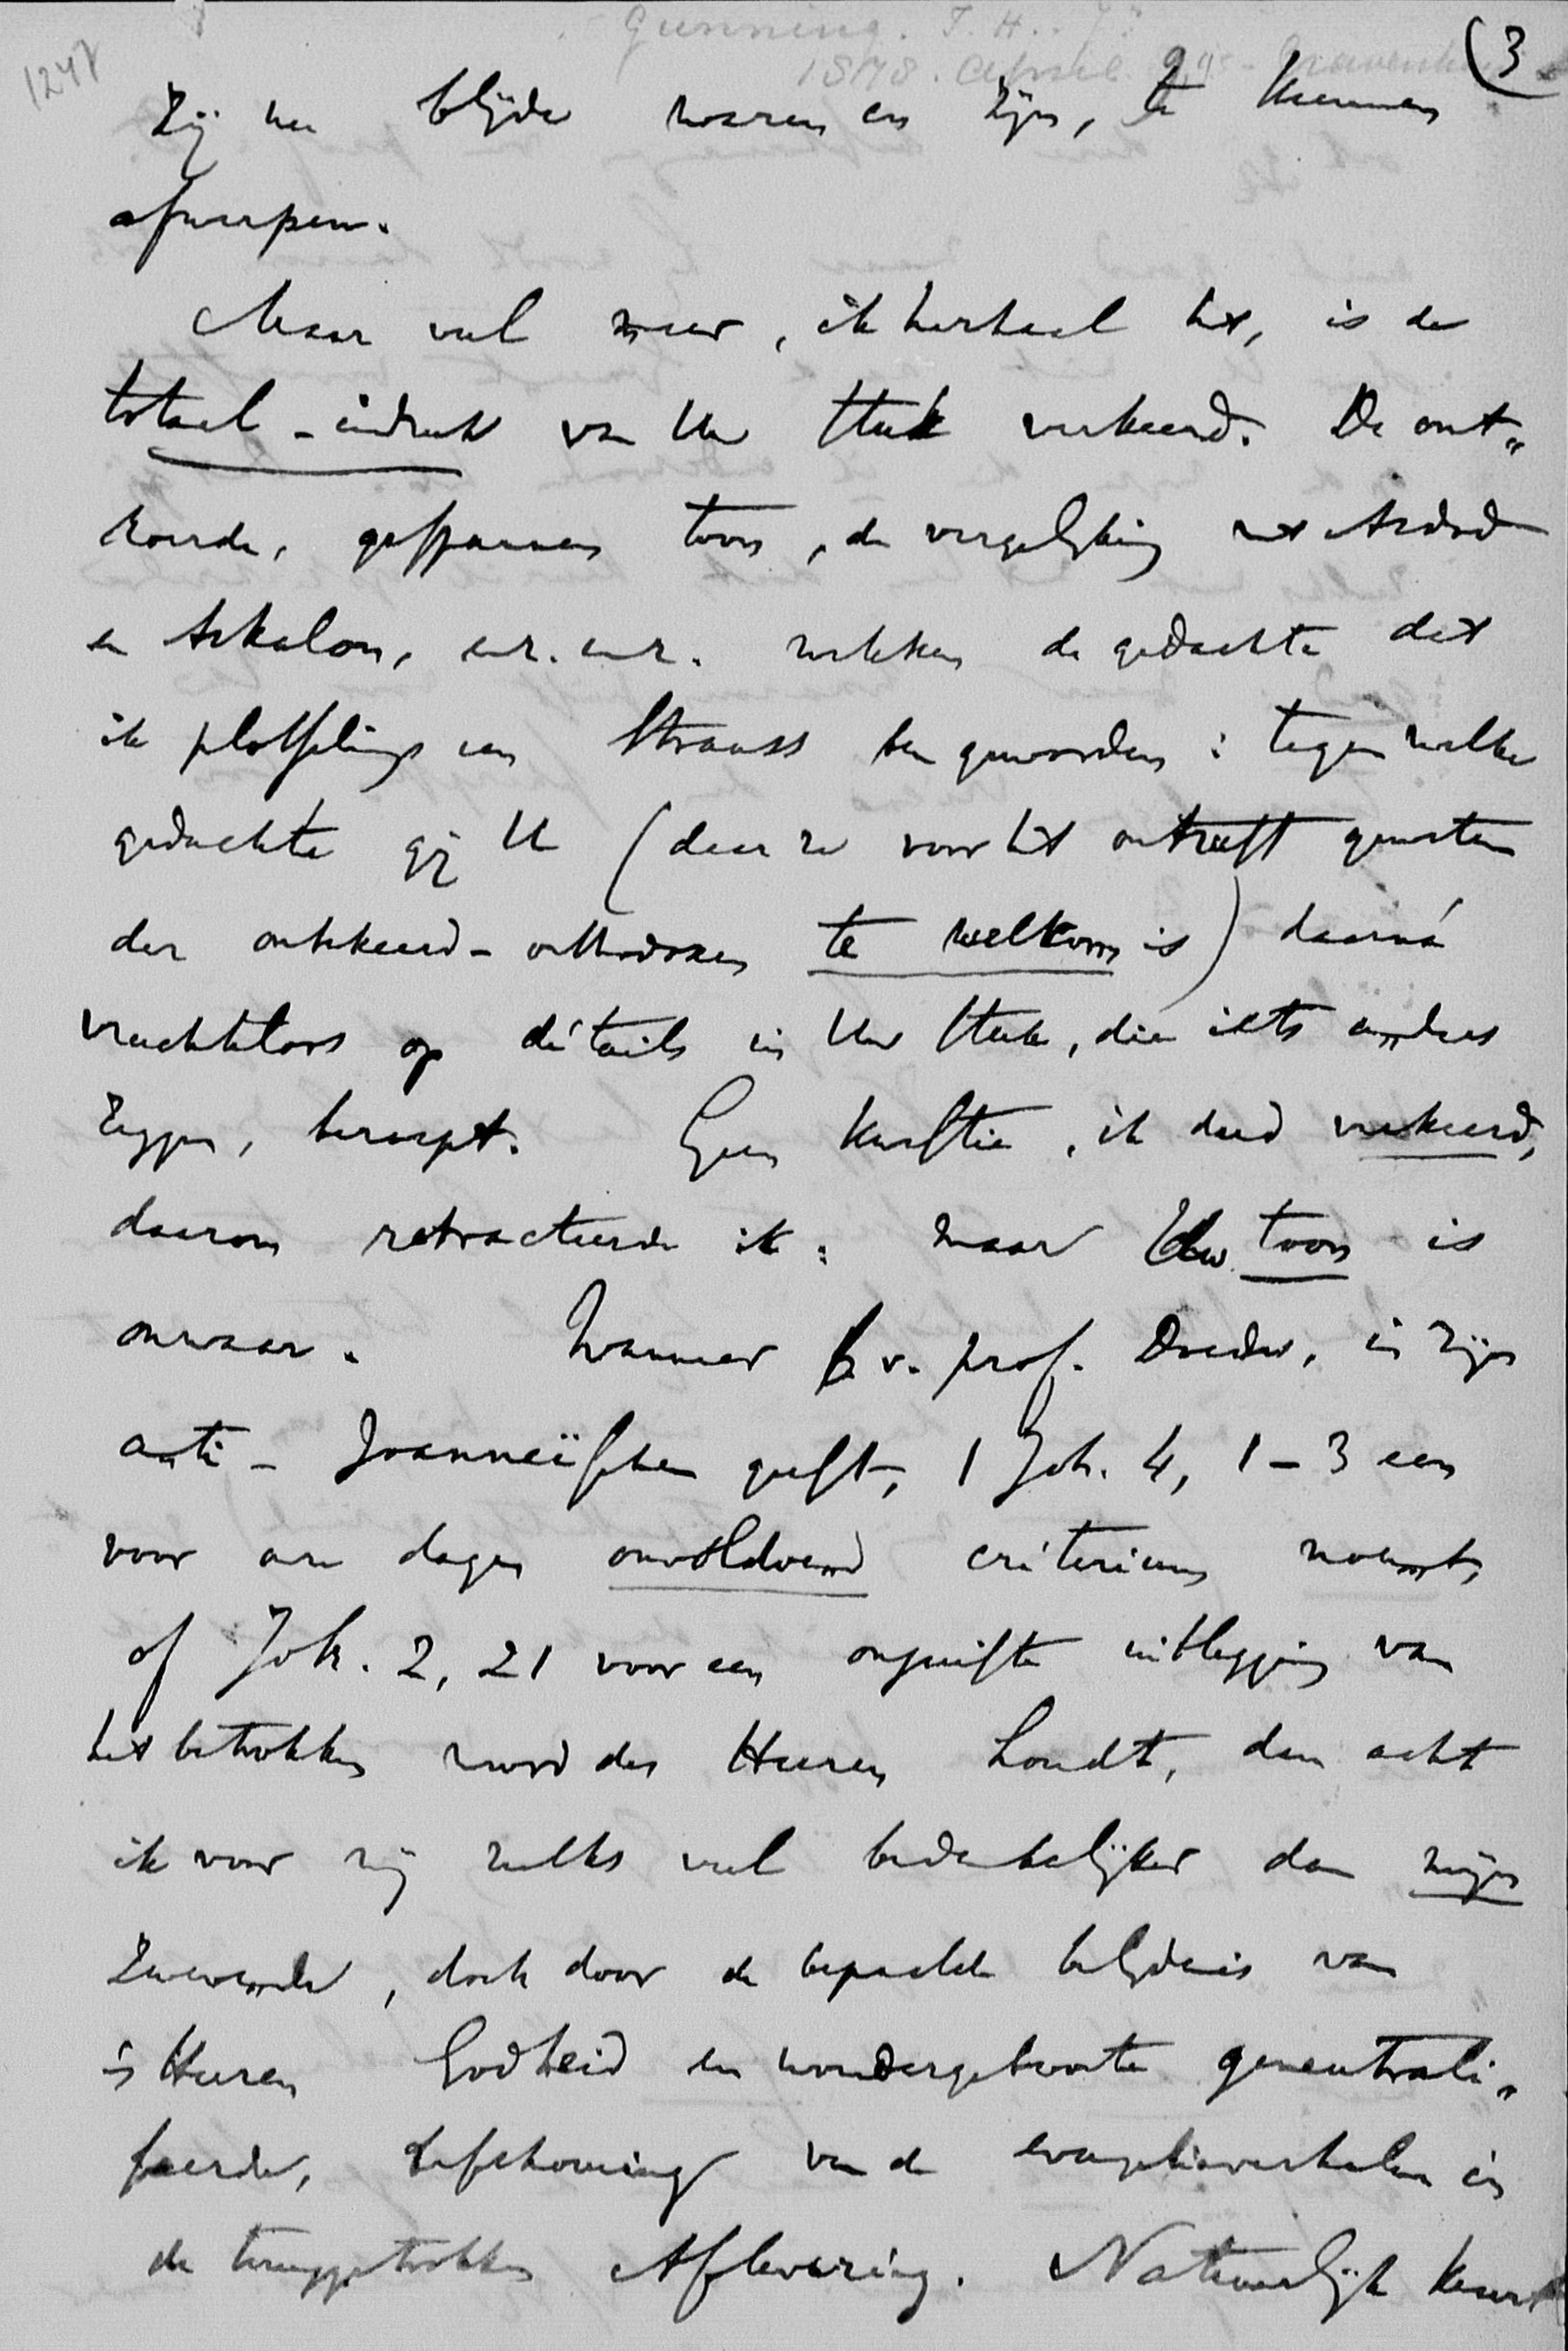 Gunning. J.H. Jr.
1878. April. 9. 's-Gravenhage
(3
1247
zij nu blijde waren en zijn, te kunnen
afwerpen.
Maar veel meer, ik herhaal het, is de
totaal-indruk van Uw stuk verkeerd. De ont„
roerde, gespannen toon, de vergelijking met Asdod
en Askalon, enz. enz. wekken de gedachte dat
ik plotseling een Strauss ben geworden: tegen welke
gedachte gij U (daar ze voor het ontrust geweten
der onbekeerd-orthodoxen te welkom is) daarná
vruchteloos op détails in Uw stuk, die iets anders
zeggen, beroept. Geen kwestie, ik deed verkeerd,
daarom retracteerde ik: maar Uw toon is
onwaar. Wanneer b.v. prof. Doedes, in zijn
anti-Joanneïschen geest, 1 Joh. 4, 1-3 een
voor onze dagen onvoldoend criterium noemt,
of Joh. 2, 21 voor een onjuiste uitlegging van
het betrokken woord des Heeren houdt, dan acht
ik voor mij zulks veel bedenkelijker dan mijn
zwevende, doch door de bepaalde belijdenis van
's Heeren Godheid en wondergeboorte geneutrali„
seerde, beschouwing van de evangelieverhalen in
de teruggetrokken Aflevering. Natuurlijk keurt